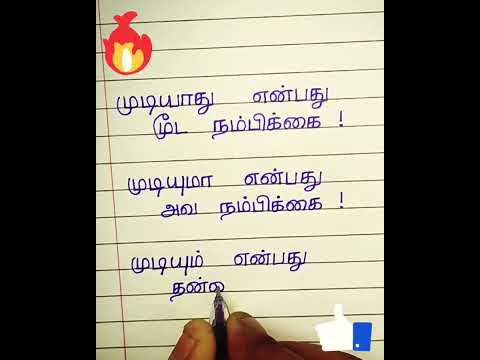 முடியாது என்பது
மூட நம்பிக்கை !
முடியுமா என்பது
அவ நம்பிக்கை !
முடியும் என்பது